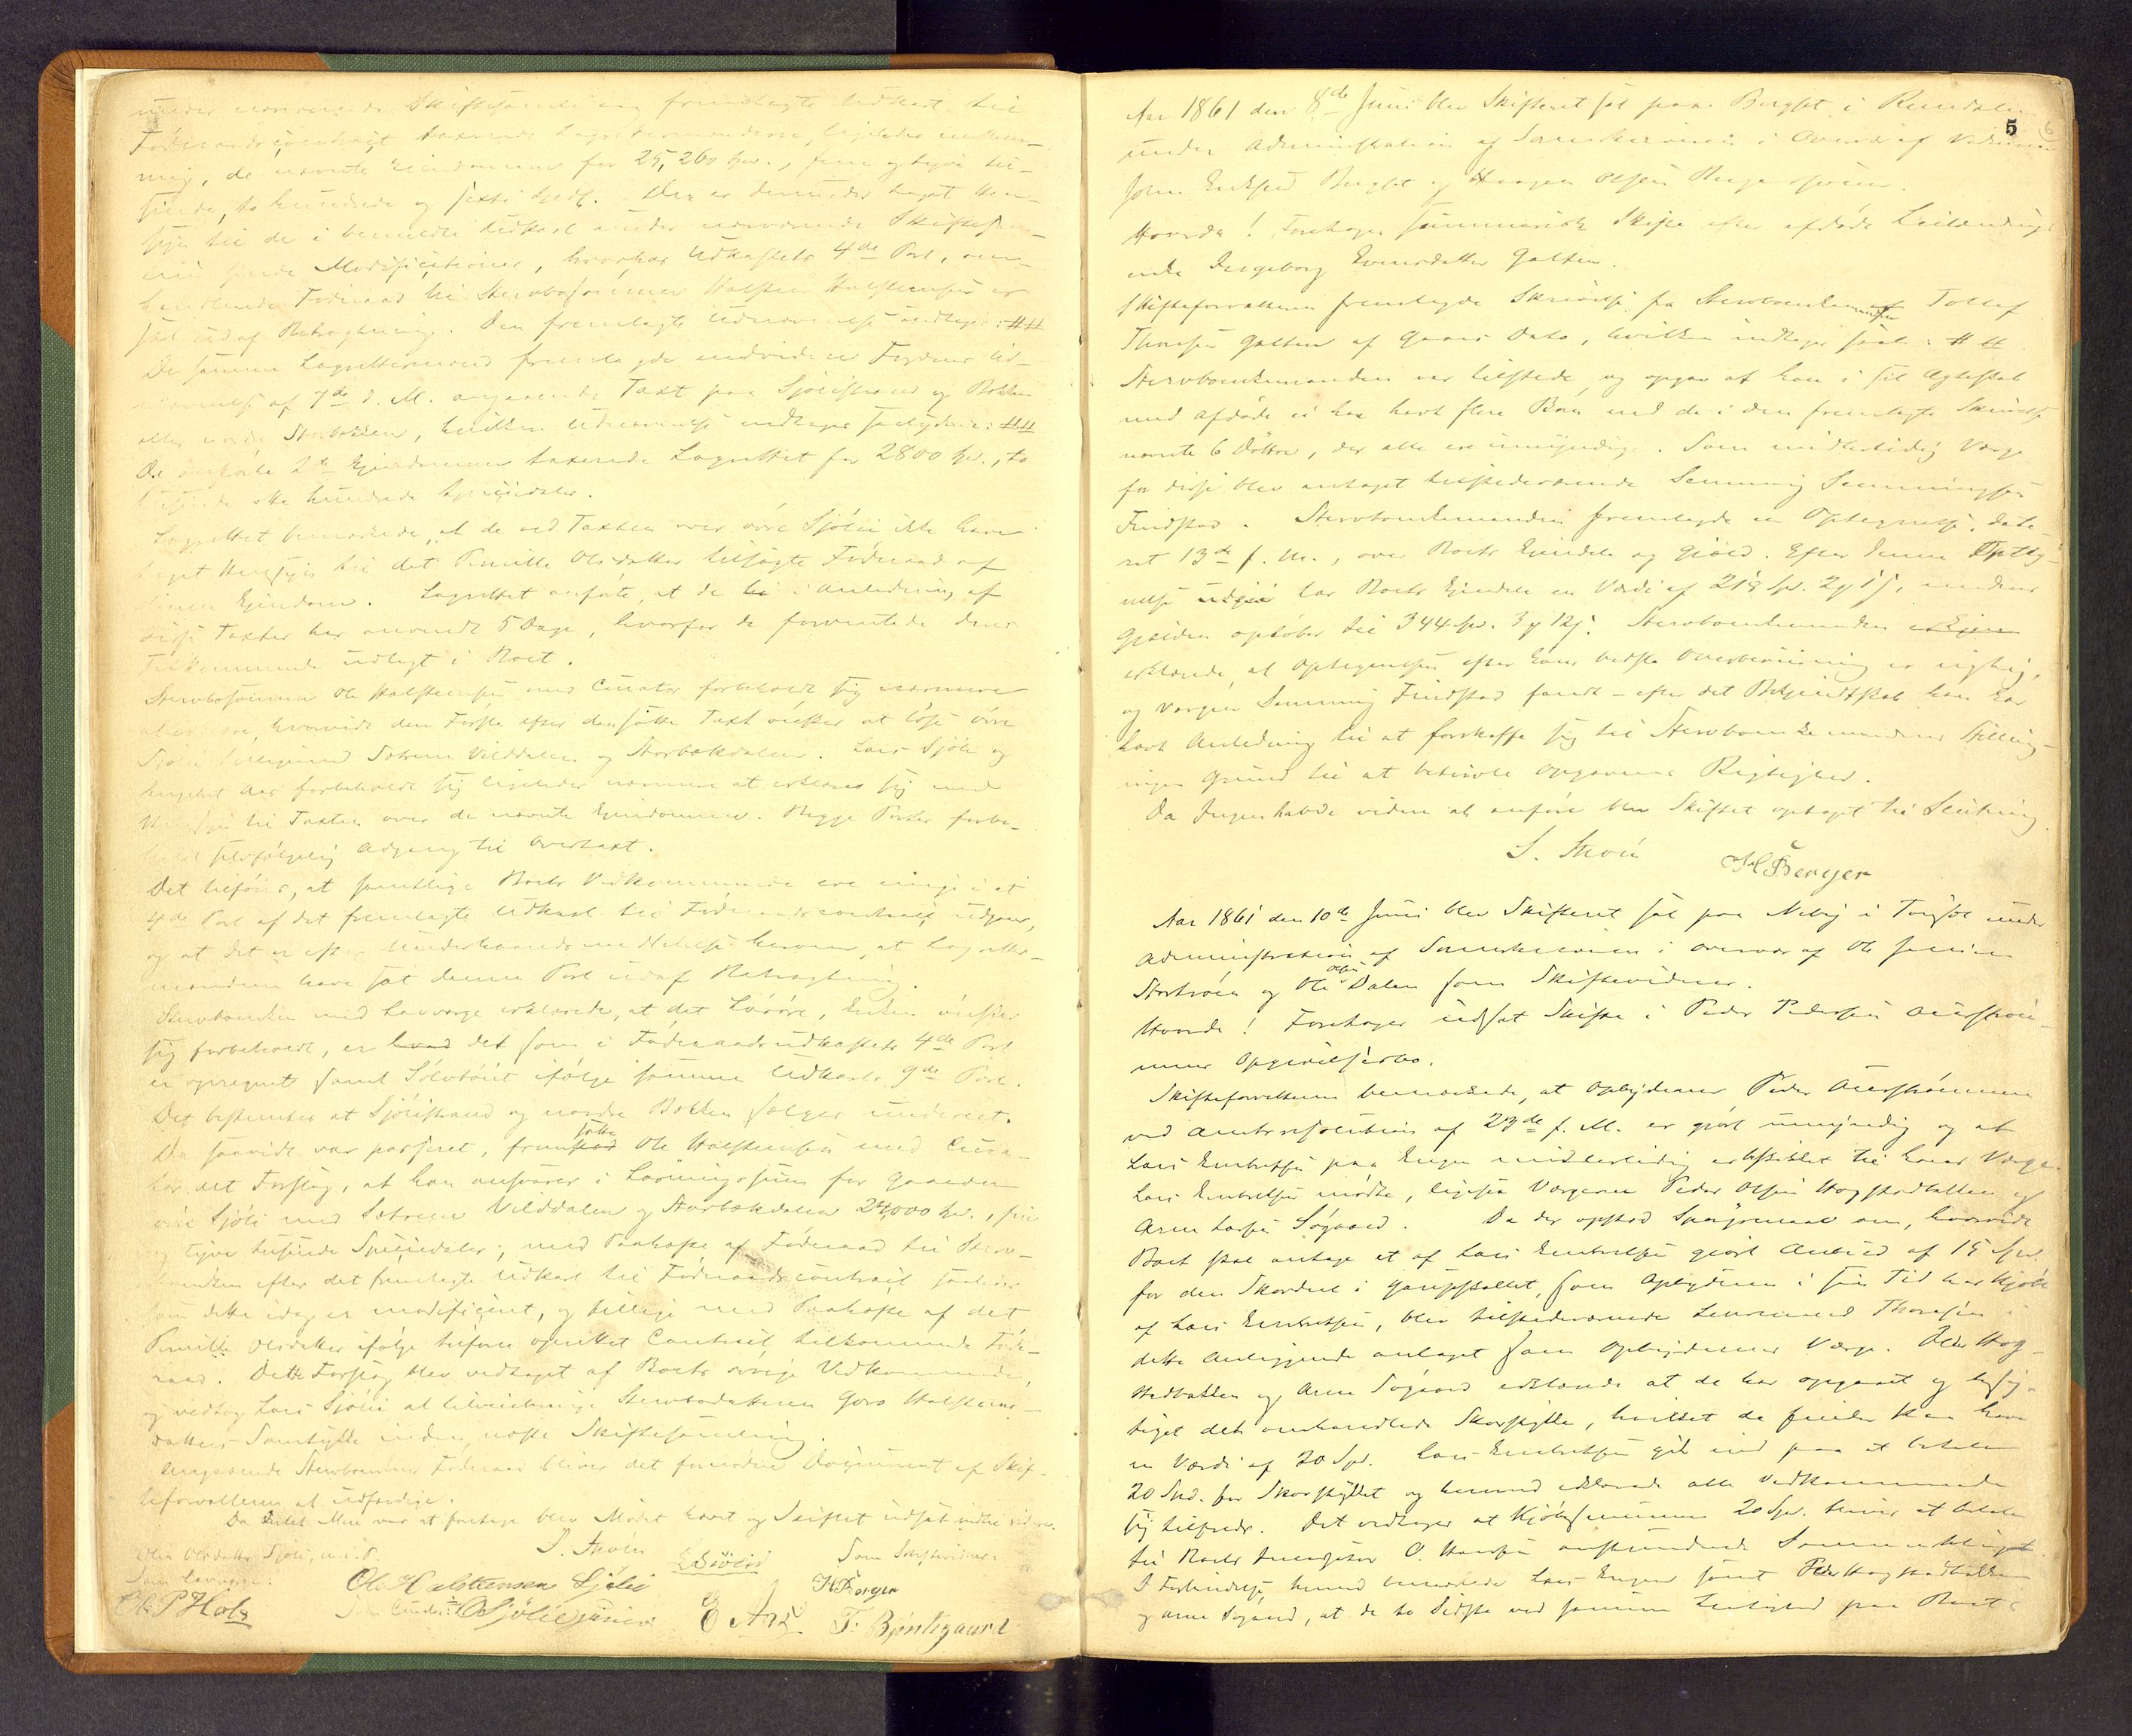 under nærværende Skiftesamling fremlagte Udkast til
Føderaadscontract taxerede Lagrettesmændene, ligeledes
nig, de nævnte Eiendomme for 25,260 Spd., fem og tyve tu-
sinde, to hundrede og sexti Spdl. Der er derunder taget Hen-
syn til de i bemeldte Udkast under nærværende Skiftesam-
ling Modificationer, hvorhos Udkastets 4de Post, om-
handlende Føderaad til Stervbosønnen Halsten Halstensen er
sat udaf Betragtning. Den fremlagte Udnævnelse indtages: ##
De samme Lagrettesmænd fremlagde endvidere Fogdens Ud-
nævnelse af 7de d. M. angaaende Taxt paa Sjølistrand og Bakken
eller nordre Storbakken, hvilken Udnævnelse indtages saalydende: ##
De anførte 2de Eiendomme taxerede Lagrettet for 2800 Spd., to
tusinde otte hundrede Speciedaler.
Lagrettet bemærkede, at de ved Taxten over øvre Sjølie ikke have
taget Hensyn til det Pernille Olsdatter tilsagte Føderaad af
denne Eiendom. Lagrettet anførte, at de i Anledning af
disse Taxter har anvendt 5 Dage, hvorfor de forventede deres
Tilkommende udlagt i Boet.
Stervbosønnen Ole Halstensen med Curator forbeholdt sig nærmere
at erklære, hvorvidt den Første efter den satte Taxt ønsker at løse øvre
Sjølie tilligemed Sætrene Vilddalen og Storbækdalen. Lars Sjølie og
Engebret Aas forbeholdt sig ligeledes nærmere at erklære sig med
Hensyn til Taxten over de nævnte Eiendomme. Begge Parter forbe-
holdt selvfølgelig Adgang til Overtaxt.
Det tilføies, at samtlige Boets Vedkommende ere enige i at
4de Post af det fremlagte Udkast til Føderaadscontract udgaaer,
og at det er efter Underhaandsmeddelelse herom, at Lagrettes-
mændene have sat denne Post udaf Betragtning.
Stervboenken med Lavværge erklærede, at det Løsøre, Enken ønsker
sig forbeholdt, er det som i Føderaadsudkastets 4de Post
er opregnet samt Sølvtøiet ifølge samme Udkasts 9de Post.
Det bestemtes at Sjølistrand og nordre Bakken sælges undereet.
Da saavidt var passeret, fremsatte Ole Halstensen med Cura-
tor det Forslag, at han ansvarer i Løsningssum for Gaarden
øvre Sjølie med Sætrene Vilddalen og Storbækdalen 25,000 Spd., fem
og tyve tusinde Speciedaler, med Paahefte af Føderaad til Sterv-
boenken efter det fremlagte Udkast til Føderaadscontract saaledes
som dette idag er modificeret, og tillige med Paahefte af det
Pernille Olsdatter ifølge tilforn oprettet Contract tilkommende Føde-
raad. Dette Forslag blev vedtaget af Boets øvrige Vedkommende,
og vedtog Lars Sjølie at tilveiebringe Stervbodatteren Goro Halstens-
datters Samtykke inden næste Skiftesamling.
Angaaende Stervboenkens Føderaad bliver det fornødne Document af Skif-
teforvalteren at udfærdige.
Da Intet Mere var at foretage blev Mødet hævet og Skiftet udsat indtil videre.
Olia Olsdatter Sjøli, m. i. P. S. Skøien LSiölid Som Skiftevidner:
Som Lavværge: Ole Halstensen Sjølie HBerger
Ole P Hols Som Curator: OSjölie E Aas T. Bjöntegaard
5
Aar 1861 den 8de Juni blev Skifteret sat paa Bergset i Rendalen
under Administration af Sorenskriveren i Overvær af Vidnerne
John Eriksen Bergset og Haagen Olsen
Hvorda! Foretages summarisk Skifte efter afdøde Leilændings-
enke Ingeborg Evensdatter Galten.
Skifteforvalteren fremlagde Skrivelse fra Stervboenkemanden Tollef
Thoresen Galten af Gaars Dato, hvilken indtages saal.: ##
Stervboenkemanden var tilstede, og opgav at han i sit Ægteskab
med Afdøde ei har havt flere Børn end de i den fremlagte Skrivelse
nævnte 6 Døttre, der alle ere umyndige. Som midlertidig Værge
for disse blev antaget tilstedeværende Semming Semmingsen
Findstad. Stervboenkemanden fremlagde en Optegnelse, date-
ret 13de f. M., over Boets Eiendele og Gjæld. Efter denne Opteg-
nelse har Boets Eiendele en Værdi af 219 Spd. 2 1, medens
Gjælden opløber til 344 Spd. 3 12. Stervboenkemanden
erklærede, at Optegnelsen efter hans bedste Overbeviisning er rigtig,
og Værgen Semming Findstad fandt – efter det Bekjendtskab han har
havt Anledning til at forskaffe sig til Stervboenkemandens Stilling –
ingen Grund til at betvivle Opgavens Rigtighed.
Da Ingen havde videre at anføre blev Skiftet optaget til Slutning.
S. Skøien HBerger
Aar 1861 den 10de Juni blev Skifteret sat paa Neby i Tønset under
Administration af Sorenskriveren i Overvær af Ole
og Ole Olsen Dalen som Skiftevidner.
Hvorda! Foretages udsat Skifte i Peder Pedersen Aurstrøm-
mens Opgivelsesbo.
Skifteforvalteren bemærkede, at Opbyderen Peder Aurstrømmen
ved Amtsresolution af 23de f. M. er gjort umyndig og at
Lars Embretsen paa Engen midlertidig er beskikket til hans Værge.
Lars Embretsen mødte, ligesaa Værgerne Peder Olsen Hogstadbakken og
Arne Larsen Søgaard. Da der opstod Spørgsmaal om, hvorvidt
Boet skal antage et af Lars Embretsen gjort Anbud af 15 Spd.
for den Skovdeel i, som Opbyderen i sin Tid har kjøbt
af Lars Embretsen, blev tilstedeværende Lensmand Thoresen i
dette Anliggende antaget som Opbyderens Værge. Peder Hog-
stadbakken og Arne Søgaard erklærede at de har opgaaet og besig-
tiget det omhandlede Skovstykke, hvilket de finder kan have
en Værdi af 20 Spd. Lars Embretsen gik ind paa at betale
20 Spd. for Skovstykket og hermed erklærede alle Vedkommende
sig tilfreds. Det vedtages at Kjøbesummen 20 Spd. bliver at betale
til Boets Incassator O. Hansen
I Forbindelse hermed bemærkede Lars Engen samt Peder Hogstadbakken
og Arne Søgaard, at de to Sidste ved samme Leilighed paa Boets